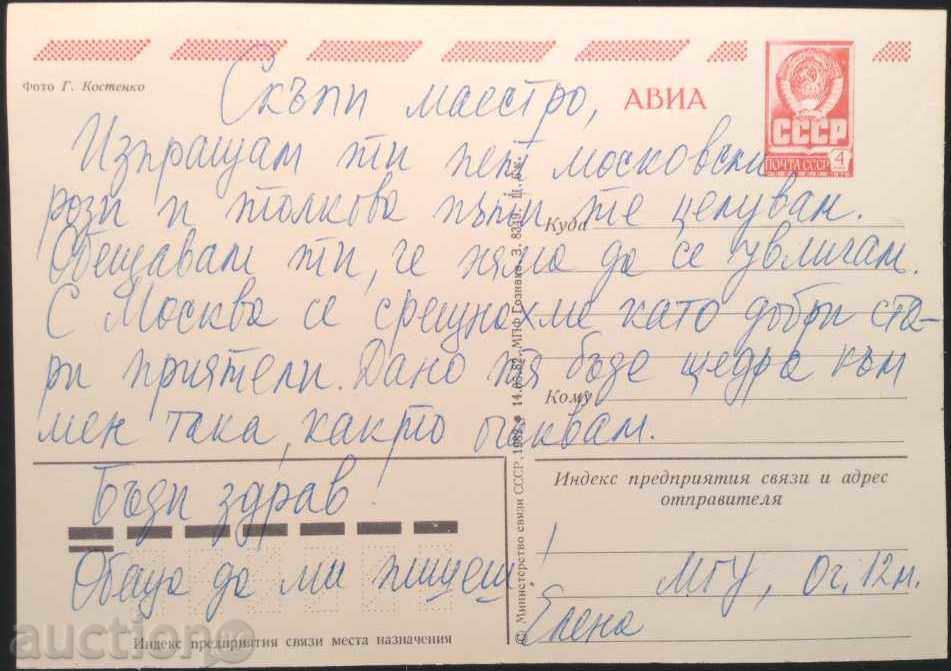 Фото Г. Костенко
АВИА
СССР
ПОЧТА СССР 4
Скъпи маестро,
Изпращам ти пет московски
рози и толкова пъти те целувам.
Обещавам ти, че няма да се увличам.
С Москва се срещнахме като добри ста-
ри приятели. Дано тя бъде щедра към
мен така, както очаквам.
Бъди здрав!
Обещай да ми пишеш!
Елена
МГУ,
Куда
Кому
Индекс предприятия связи и адрес
отправителя
© Министерство связи СССР, 1982. 14.05.82. МПФ Гознака. З. 8319. Ц. 5 к.
Индекс предприятия связи места назначения
auction